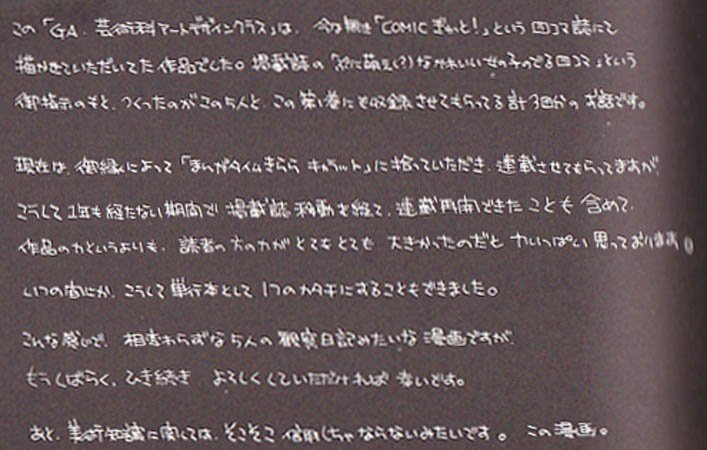 この「GA 芸術科アートデザインクラス」は、今は無き「COMIC ぎゅっと!」という四コマ誌にて
描かせていただいてた作品でした。掲載誌の「 萌え(?)なかわいい女の子のでる四コマ」という
御指示のもと、つくったのがこの5人と、この第1巻にも収録させてもらってる計3回分のお話です。
現在は、御縁によって「まんがタイムきららキャラット」に拾っていただき、連載させてもらってますが
こうして1年も経たない期間で掲載誌移動を経て、連載再開できたことも含めて、
作品の力というよりも、読者の方の力がとてもとても大きかったのだと力いっぱい思っております。
いつの間にか、こうして単行本として1つのカタチにすることもできました。
こんな感じで、相変わらずな5人の観察日記みたいな漫画ですが、
もうしばらく、ひき続きよろしくしていただければ幸いです。
あと、美術知識に関しては、そこそこ信用しちゃならないみたいです。この漫画。